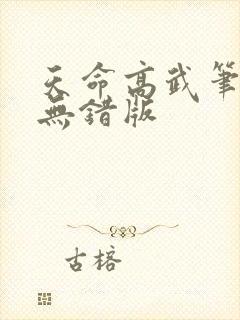 天命高武筆
無錯版
古榕